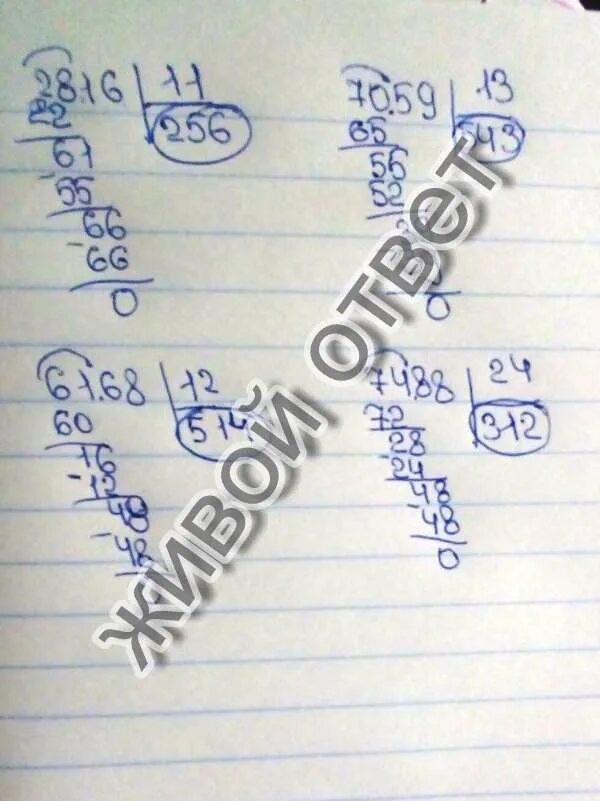 2816 11
22 256
61
-55
66
-66
0
7059 13
65 543
55
52
0
6168 12
60 514
16
-12
48
-48
7488 24
72 312
28
24
48
-48
0
ЖИВОЙ ОТВЕТ